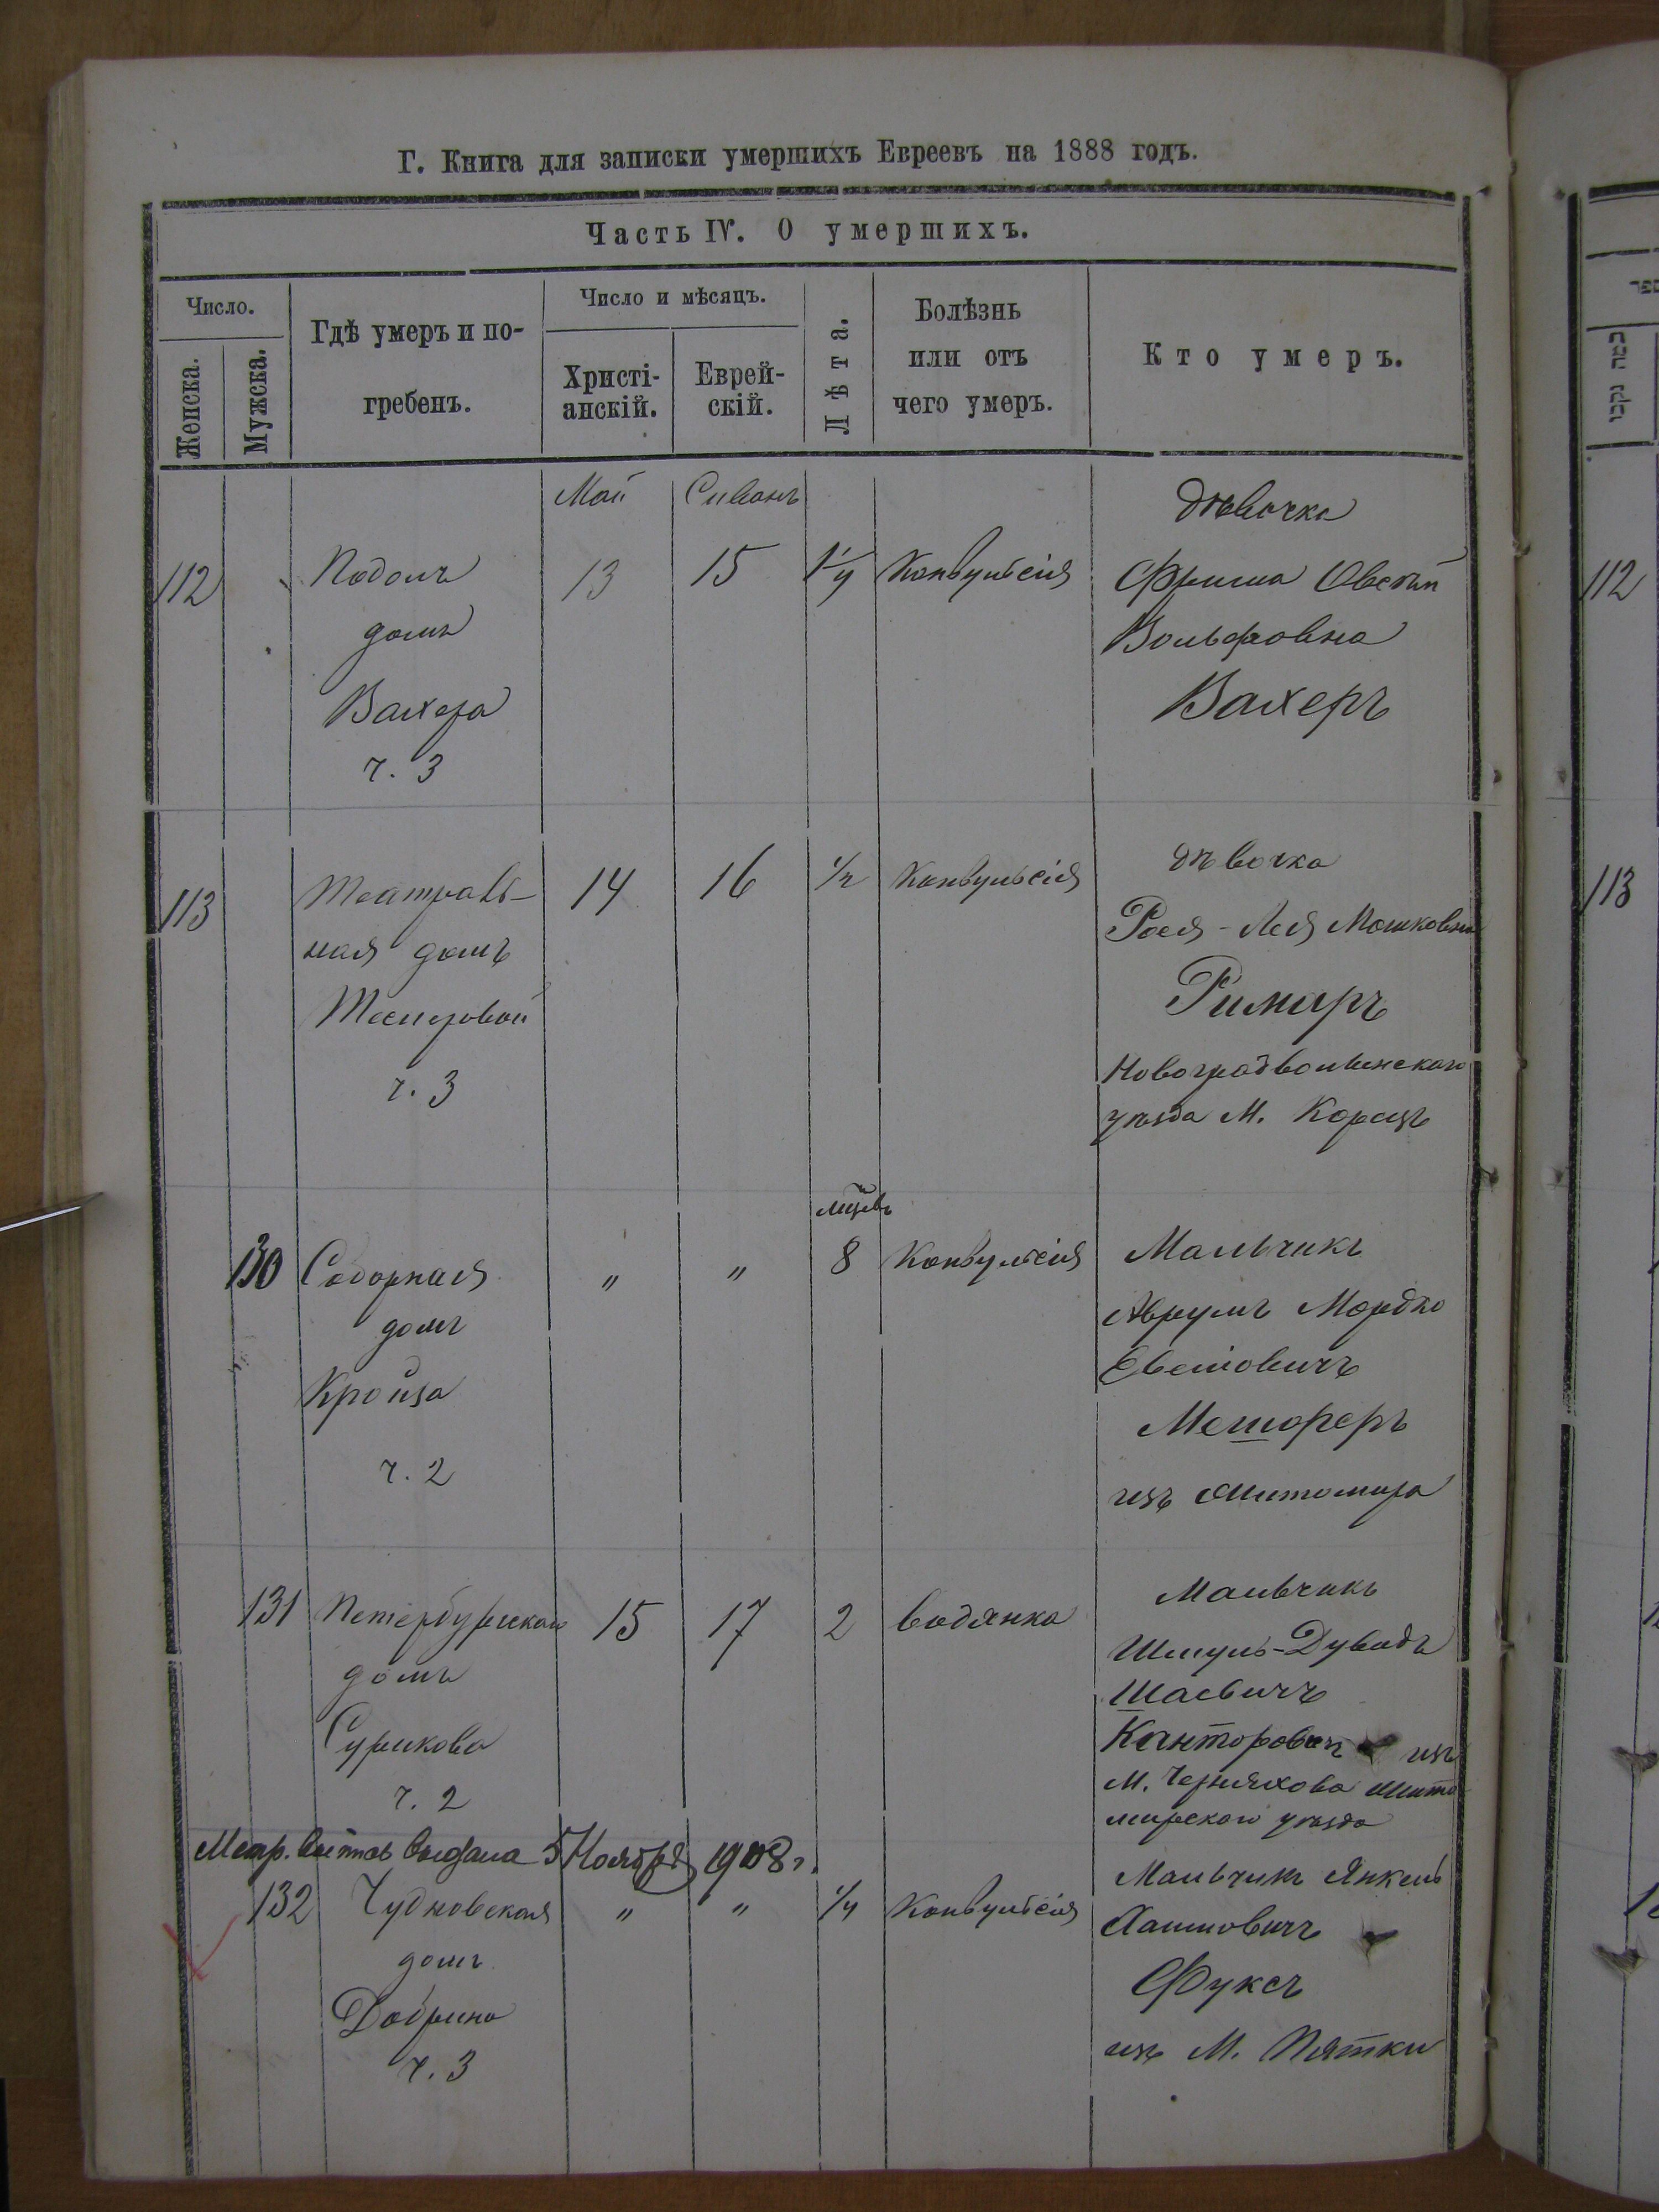 Г. Книга для записки умершихъ Евреевъ на 1888 годъ.
Часть IV. О умершихъ.
Число.
Женска.
Мужска.
Гдѣ умеръ и по-
гребенъ.
Число и мѣсяцъ.
Христі-
анскій.
Еврей-
скій.
Лѣта.
Болѣзнь
или отъ
чего умеръ.
Кто умеръ.
Май Сиванъ
112
Подолъ
домъ
Вахера
ч. 3
13
15
Конвульсія
дѣвочка
Вольфовна
Вахеръ
113
Театраль-
ная домъ
ч. 3
14
16
1/2
Конвульсія
дѣвочка
Рося-Лея Мошковна
Римаръ
Новоградволынскаго
уѣзда М. Корецъ
130
Соборная
домъ
Кройза
ч. 2
"
"
8
Конвульсія
Мальчикъ
Аврумъ Мордко
Мешореръ
изъ Житомира
131
Петербургская
домъ
Сурикова
ч. 2
15
17
2
водянка
Мальчикъ
Шмуль-Дувидъ
Шаевичъ
Канторовичъ изъ
М. Черняхова Жито
мирскаго уѣзда
Метр. выпись выдана 5 Ноября 1908 г.
132
Чудновская
домъ
Добрина
ч. 3
"
"
1/4
Конвульсія
Мальчикъ Янкель
Хаимовичъ
Фуксъ
изъ М. Пятки
112
113